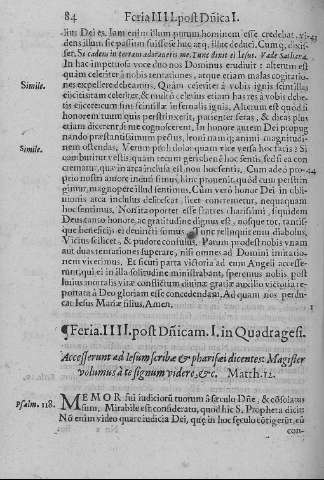 84 Feria IIII. post Dñica I.
lius Dei es. Iam enim illum purum hominem esse credebat, vi-
dens illum sic passum fuisse se huc atq; illuc deduci. Cumq; dixis-
set. Si cadens in terram adoraueris me. Tunc dixit ei Iesus. Vade Sathana.
In hac impetuosa voce duo nos Dominus erudiuit: alterum est
quàm celeriter à nobis tentationes, atque etiam malas cogitatio-
Simile. nes expellere debeamus. Quàm celeriter à vobis ignis scintillas
eiicitis
tam celeriter, & multò celerius etiam has res à vobis debe-
tis eiicere cum sint scintillæ infernalis ignis. Alterum est quòd si
honorem tuum quis perstrinxerit, patienter feras, & dicas plus
etiam dicere si me cognosceret. In honore autem Dei propug
nando præstantissimum pectus, leoninamq; animi magnitudi-
Simile. nem ostendas. Verum proh dolor quàm vice versa hoc facis? Si
comburitur vestis, quàm tecum geris bene hoc sentis, sed si ea con
crematur, quæ in arca inclusa est non hoc sentis. Cum adeo pro- 44
prio nostro amore induti simus, hinc prouenit, quòd cum perstrin
gimur, magnopere illud sentimus. Cùm verò honor Dei in obli-
uionis arca inclusus delitescat, licet concremetur, nequaquam
hoc sentimus. Non ita oportet esse fratres charissimi, siquidem
Deus tanto honore, ac gratitudine dignus est, nosque tot, tantis-
que beneficiis ei deuincti sumus. Tunc relinquit eum diabolus,
Victus scilicet, & pudore confusus. Parum prodest nobis vnam
aut duas tentationes superare, nisi omnes ad Domini imitatio-
nem vicerimus. Et sicuti parta victoria ad eum Angeli accesse-
runt, qui ei in illa solitudine ministrabant, speremus nobis post
huius mortalis vitæ conflictum diuinæ gratiæ auxilio victoria re-
portata à Deo gloriam esse concedendam. Ad quam nos perdu-
cat Iesus Mariæ filius, Amen.
¶Feria. IIII. post Dñicam. I. in Quadragesi.
Accesserunt ad Iesum scribæ & pharisæi dicentes: Magister
volumus à te signum videre, &c. Matth. 12.
Psalm. 118. MEMOR fui iudiciorũ tuorum à sæculo Dñe, & cõsolatus
sum. Mirabile est consideratu, quod hîc S. Propheta dicit.
Nõ enim video quare iudicia Dei, quę in hoc sęculo cõtigerũt, eũ
con-